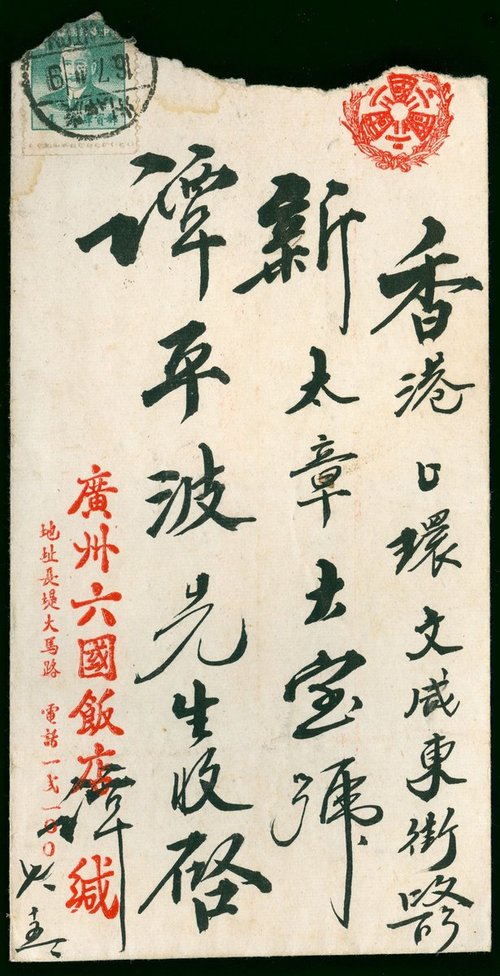 香港環文咸東街
新太章宝號
譚平波先生收啓
廣州六國飯店緘
地址長堤大馬路 電話一弌一〇〇
譚